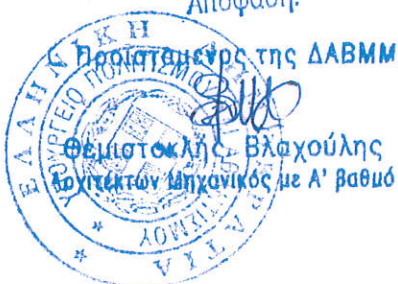 Απόφαση.
Ο Προϊστάμενος της ΔΑΒΜΜ
Θεμιστοκλής Βλαχούλης
Αρχιτέκτων Μηχανικός με Α' βαθμό
ΕΛΛΗΝΙΚΗ ΔΗΜΟΚΡΑΤΙΑ
ΥΠΟΥΡΓΕΙΟ ΠΟΛΙΤΙΣΜΟΥ